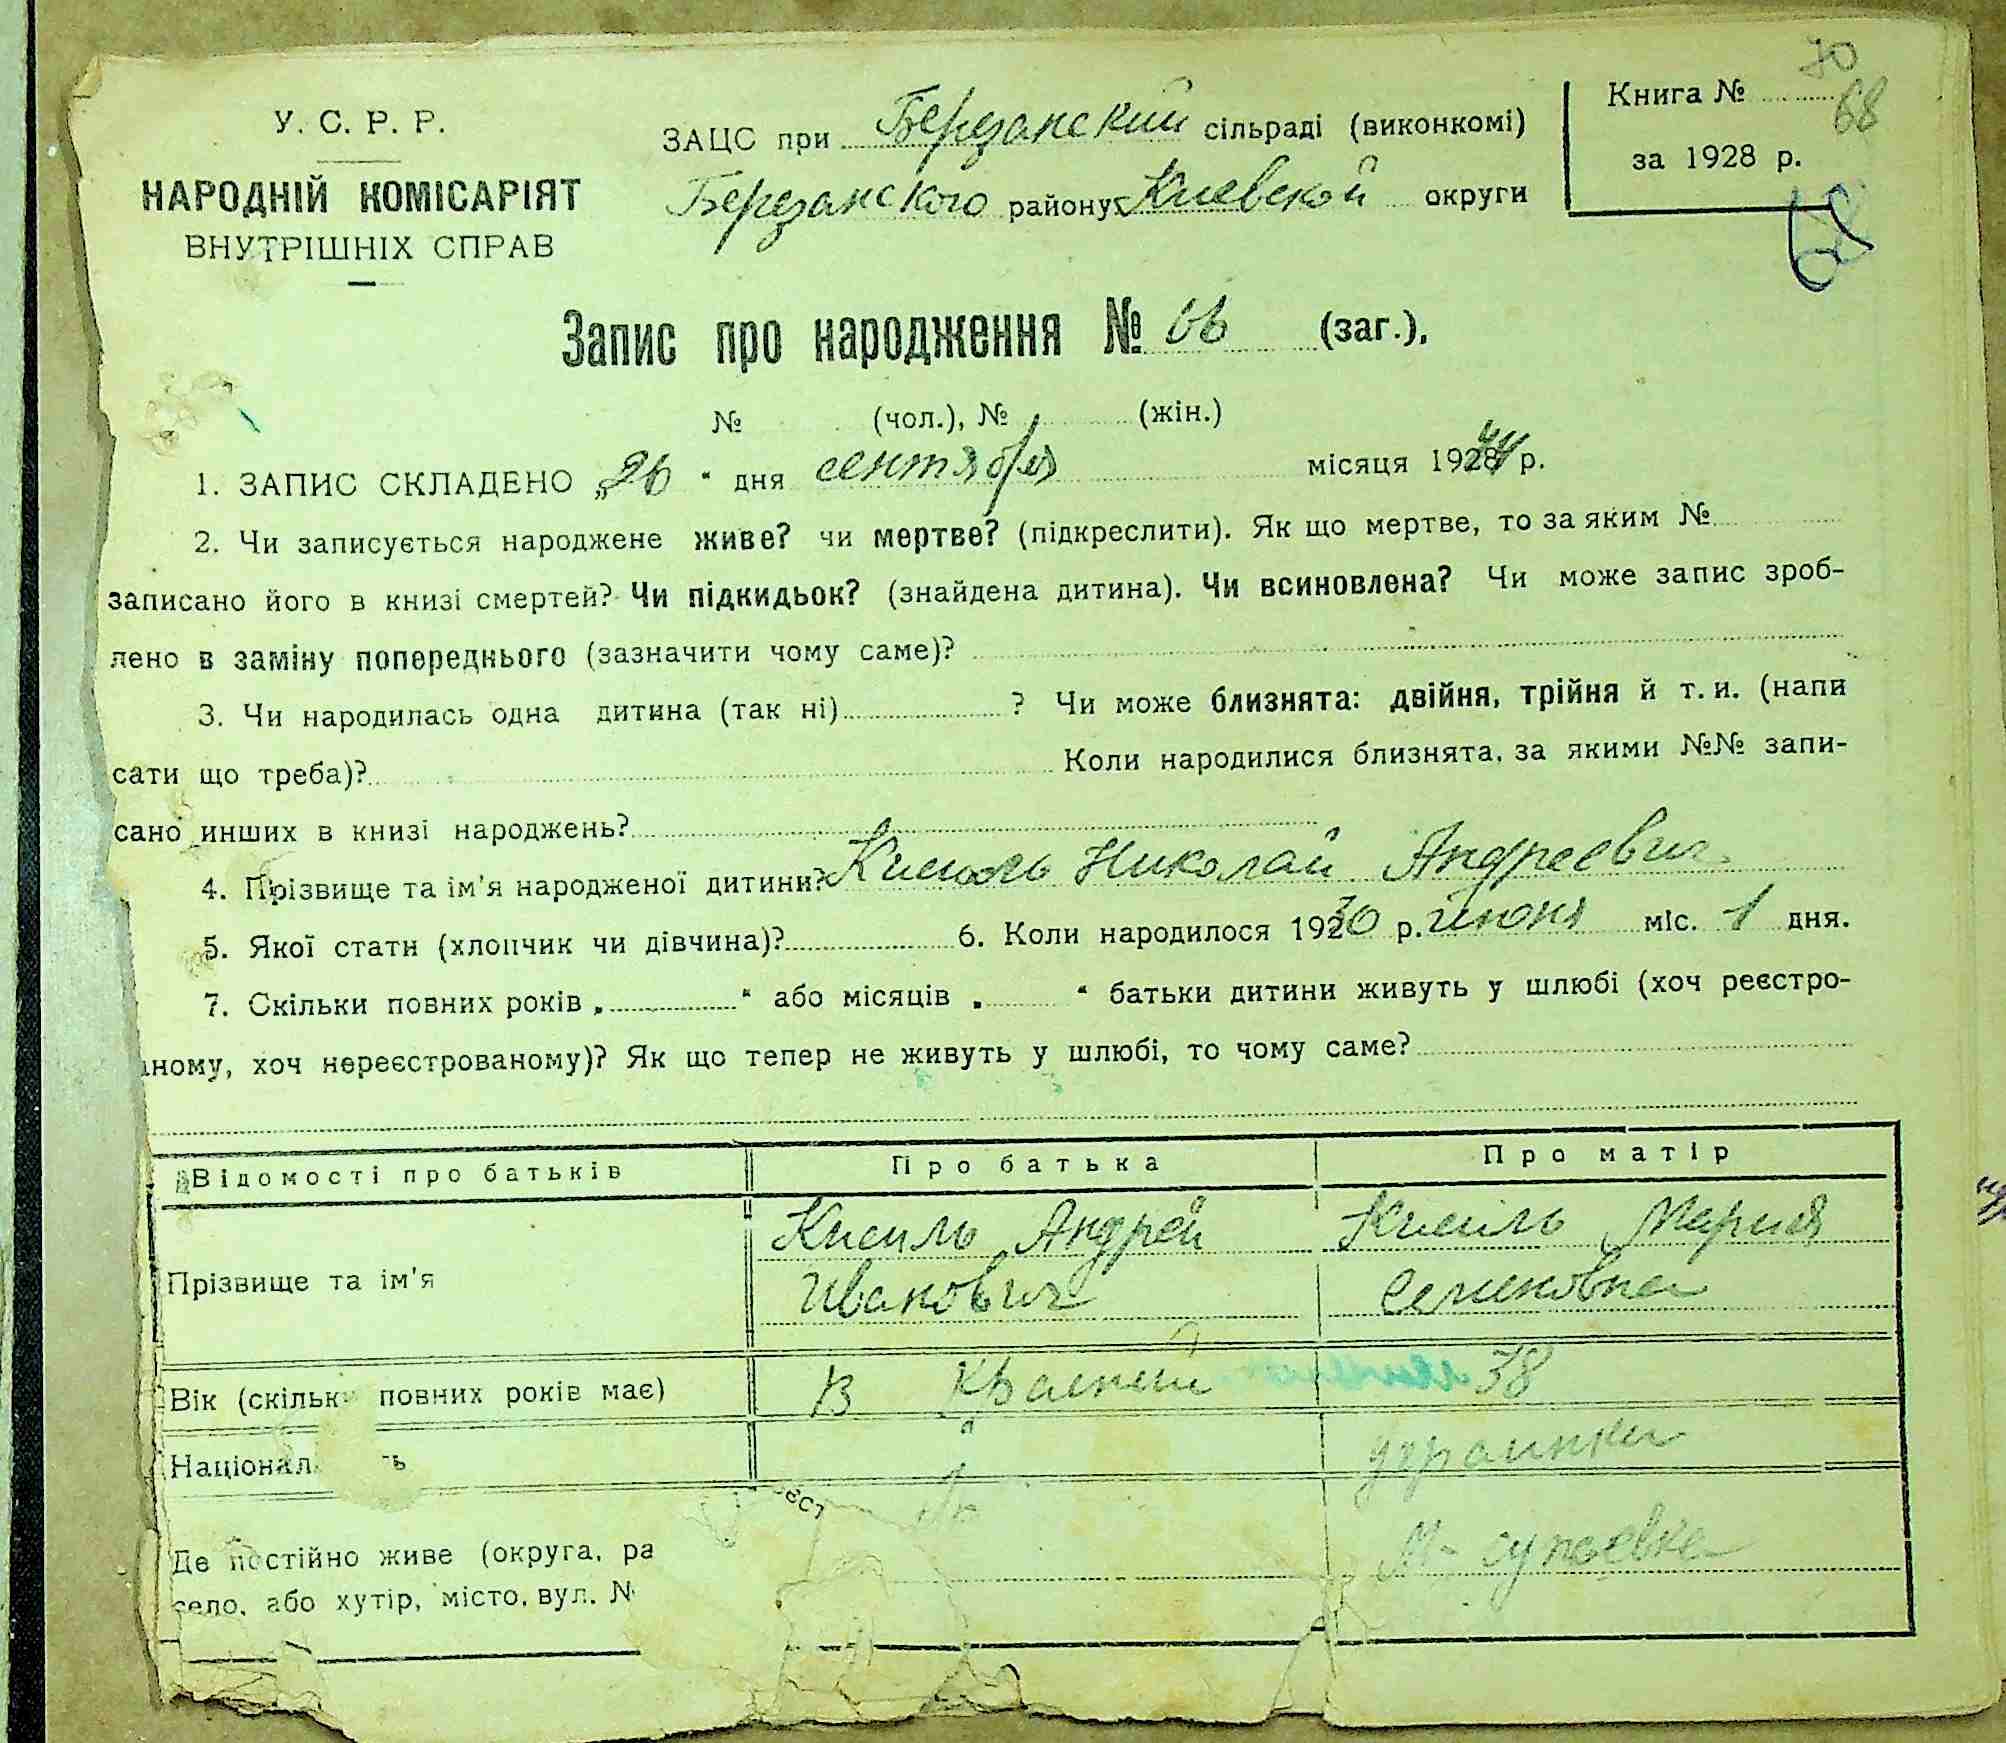 70
Книга № 68
за 1928 р.
68
У. С. Р. Р.
НАРОДНІЙ КОМІСАРІЯТ
ВНУТРІШНІХ СПРАВ
ЗАЦС при Березанский сільраді (виконкомі)
Березанского району Киевской округи
Запис про народження № 66 (заг.),
№ (чол.), № (жін.)
1. ЗАПИС СКЛАДЕНО „26“ дня сентября місяця 1944 р.
2. Чи записується народжене живе? чи мертве? (підкреслити). Як що мертве, то за яким №
записано його в книзі смертей? Чи підкидьок? (знайдена дитина). Чи всиновлена? Чи може запис зроб-
лено в заміну попереднього (зазначити чому саме)?
3. Чи народилась одна дитина (так ні) ? Чи може близнята: двійня, трійня й т. и. (напи
сати що треба)? Коли народилися близнята, за якими №№ запи-
сано инших в книзі народжень?
4. Прізвище та ім'я народженої дитини? Кисиль Николай Андреевич
5. Якої стати (хлопчик чи дівчина)? 6. Коли народилося 1930 р. июня міс. 1 дня.
7. Скільки повних років „ “ або місяців „ “ батьки дитини живуть у шлюбі (хоч реєстро-
аному, хоч нереєстрованому)? Як що тепер не живуть у шлюбі, то чому саме?
Відомості про батьків Про батька Про матір
Прізвище та ім'я Кисиль Андрей Кисиль Мария
Иванович Семеновна
Вік (скільки повних років має) В 38
Націонал ь украинка
Де постійно живе (округа, ра М-супоевка
село, або хутір, місто, вул. №